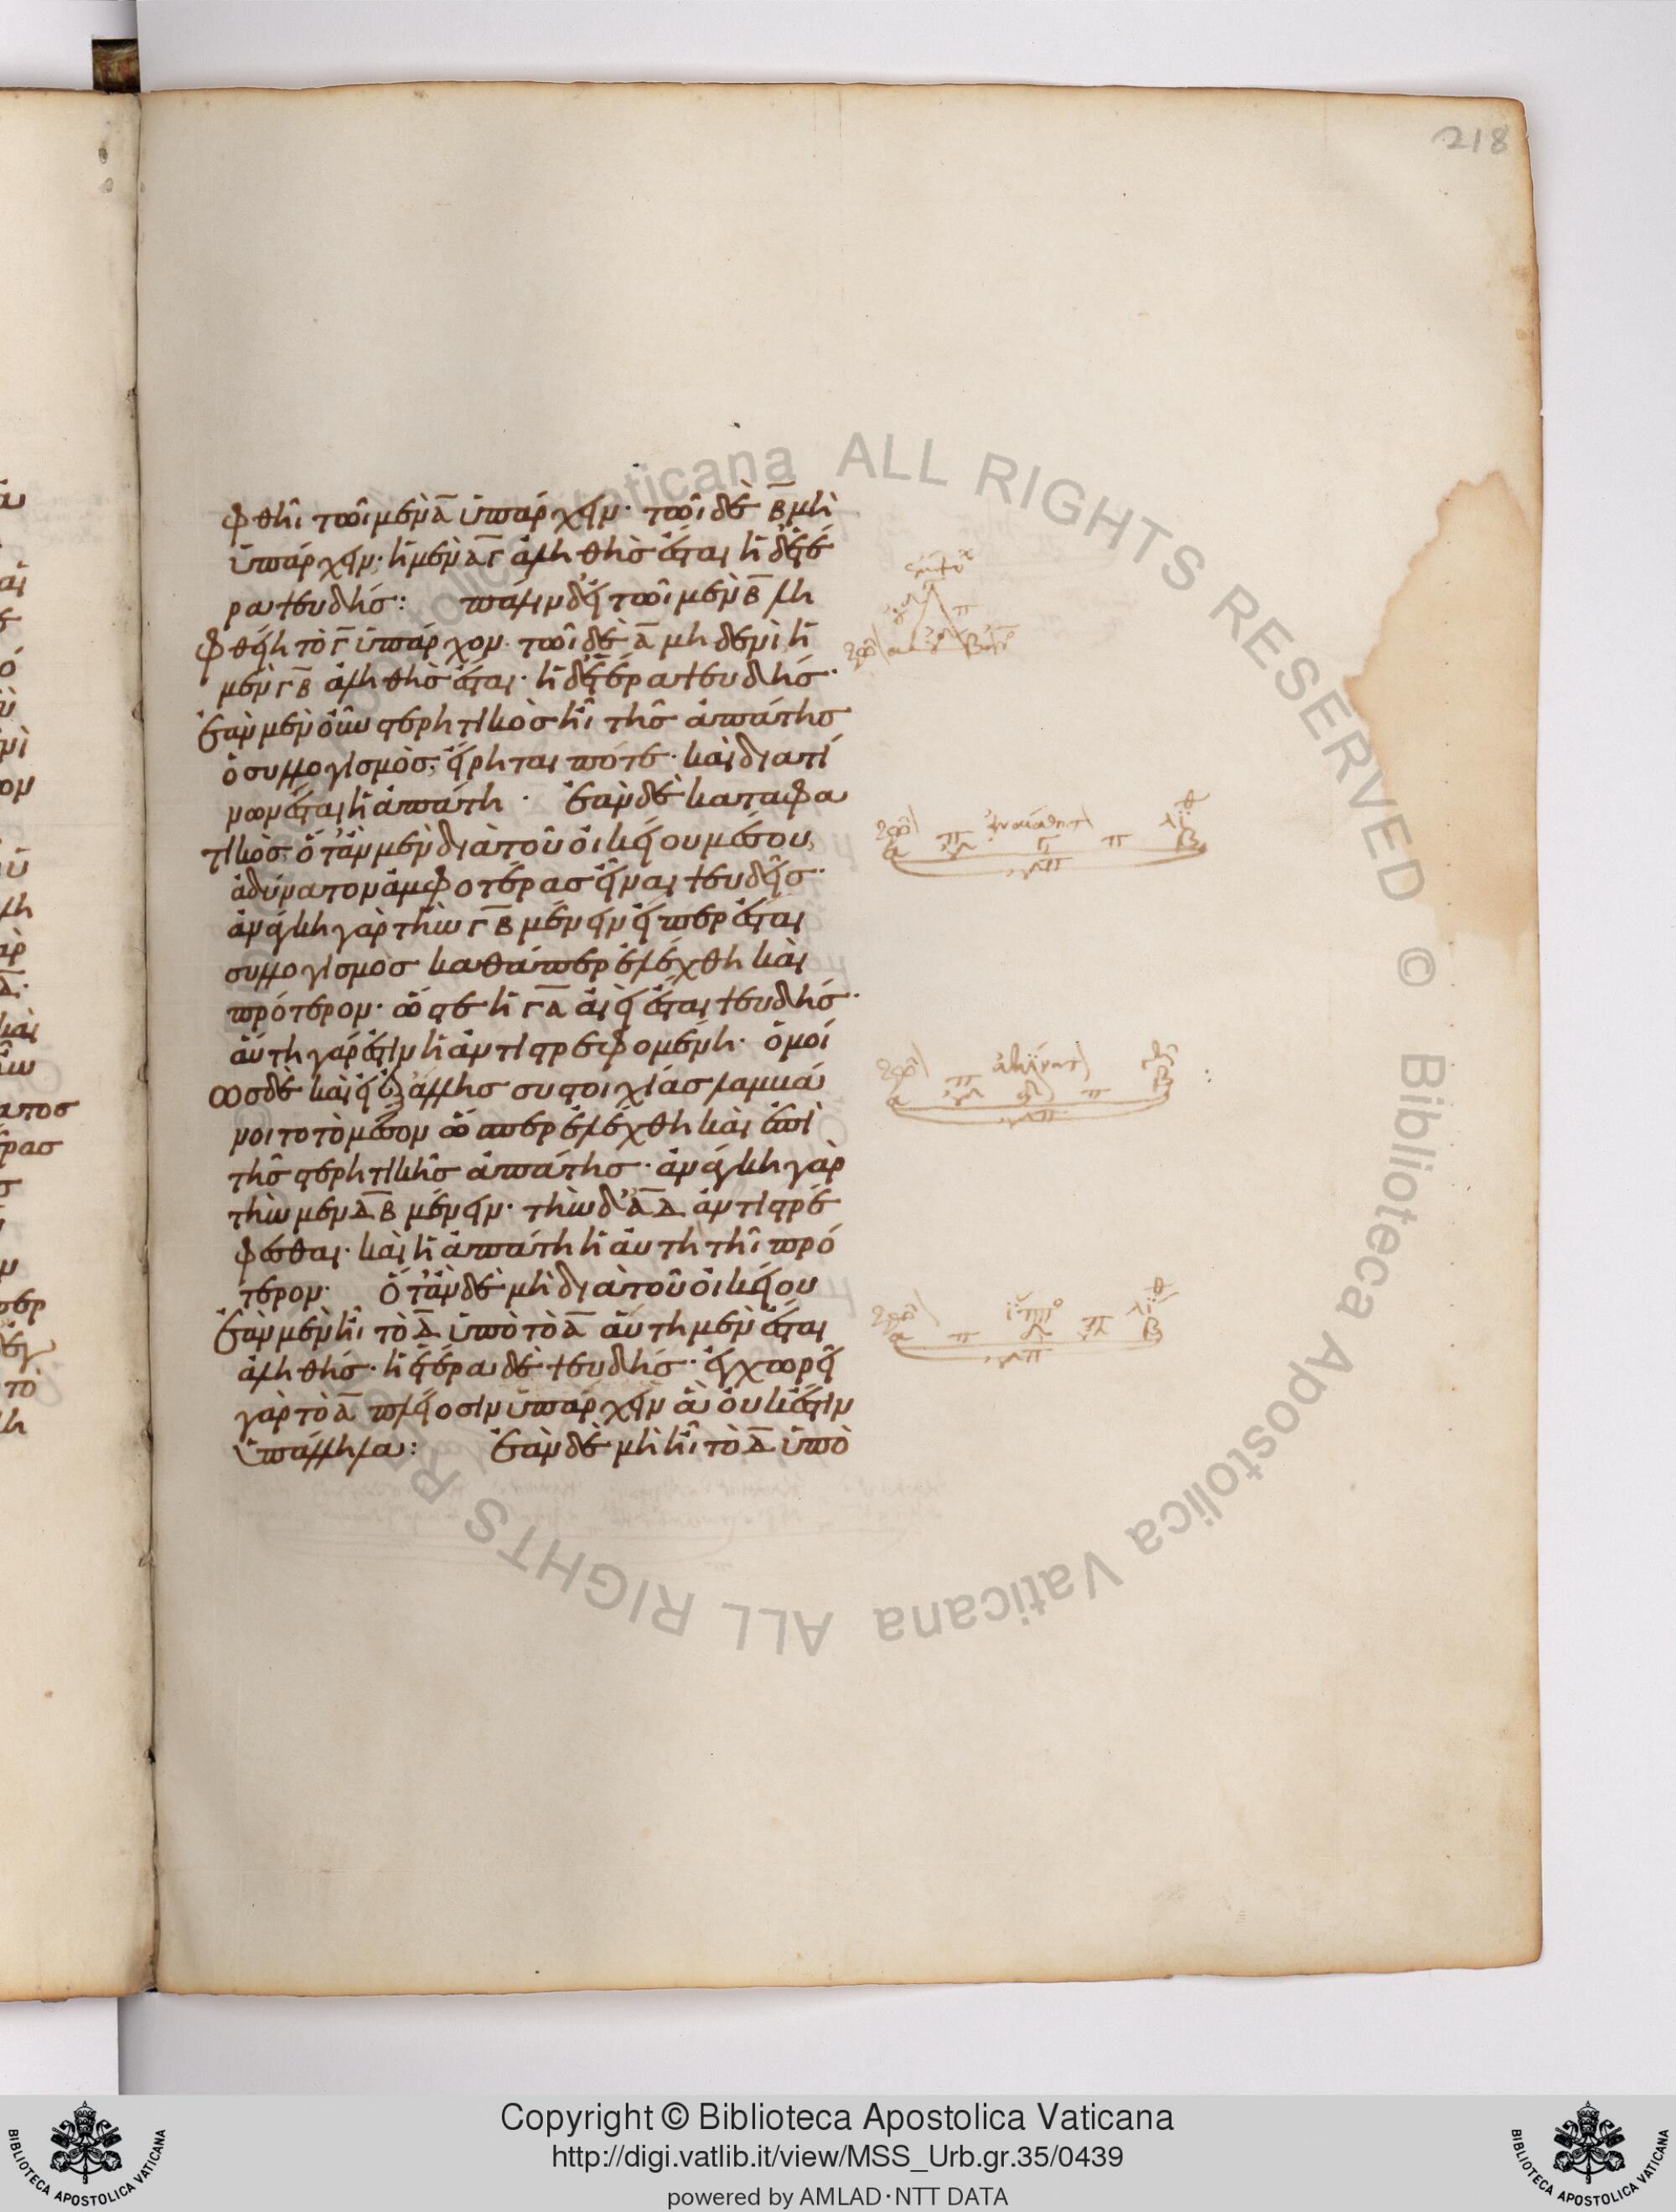 218
φθῆι τῶι μὲν Α ὑπάρχειν· τῶι δὲ Β μὴ
ὑπάρχειν· ἡ μὲν ΑΓ ἀληθὴς ἔσται ἡ δ' ἑτέ
ρα ψευδής: πάλιν δ' εἰ τῶι μὲν Β λη
φθείη τὸ Γ ὑπάρχον· τῶι δὲ Α μηδενὶ ἡ
μὲν ΓΒ ἀληθὴς ἔσται· ἡ δ' ἑτέρα ψευδής·
ἐὰν μὲν οὖν στερητικὸς ἦι τῆς ἀπάτης
ὁ συλλογισμὸς, εἴρηται πότε· καὶ διὰ τί
νων ἔσται ἡ ἀπάτη· ἐὰν δὲ καταφα
τικὸς, ὅταν μὲν διὰ τοῦ οἰκείου μέσου,
ἀδύνατον ἀμφοτέρας εἶναι ψευδεῖς·
ἀνάγκη γὰρ τὴν ΓΒ μένειν εἴπερ ἔσται
συλλογισμὸς καθάπερ ἐλέχθη καὶ
πρότερον· ὥστε ἡ ΓΑ ἀεὶ ἔσται ψευδής·
αὕτη γάρ ἐστιν ἡ ἀντιστρεφομένη· ὁμοί
ως δὲ καὶ εἰ ἐξ ἄλλης συστοιχίας λαμβά
νοιτο τὸ μέσον ὥσπερ ἐλέχθη καὶ ἐπὶ
τῆς στερητικῆς ἀπάτης· ἀνάγκη γὰρ
τὴν μὲν ΔΒ μένειν· τὴν δ' ΑΔ ἀντιστρέ
φεσθαι· καὶ ἡ ἀπάτη ἡ αὐτὴ τῆι πρό
τερον· ὅταν δὲ μὴ διὰ τοῦ οἰκείου
ἐὰν μὲν ἦι τὸ Δ ὑπὸ τὸ Α αὕτη μὲν ἔσται
ἀληθής· ἡ ἑτέρα δὲ ψευδής· ἐγχωρεῖ
γὰρ τὸ Α πλείοσιν ὑπάρχειν ἃ οὐκ ἔστιν
ὑπάλληλα: ἐὰν δὲ μὴ ἦι τὸ Δ ὑπὸ
ALL RIGHTS RESERVED © Biblioteca Apostolica Vaticana
Copyright © Biblioteca Apostolica Vaticana
http://digi.vatlib.it/view/MSS_Urb.gr.35/0439
powered by AMLAD·NTT DATA
BIBLIOTECA APOSTOLICA VATICANA
BIBLIOTECA APOSTOLICA VATICANA